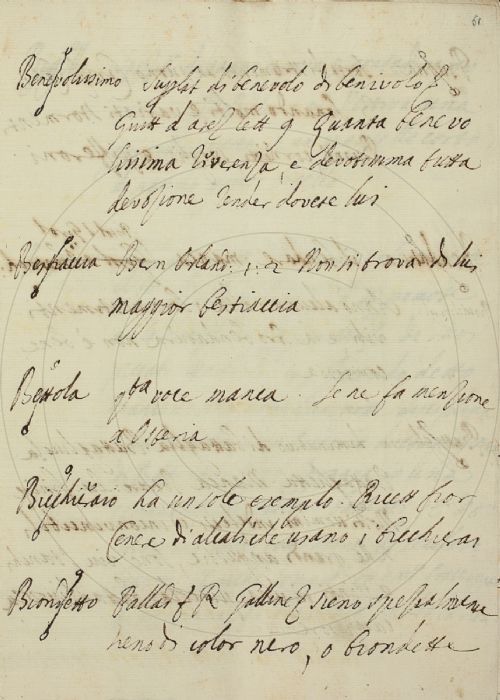 61
Benevolissimo superlat di benevolo di benivolo f
Guitt d arez lett 9 Quanta benevo
lissima riverenza, e devotissima tutta
devozione render dovete lui
Bestiaccia Bern Orland. 1. 2 Non si trova di lui
maggior bestiaccia
Bettola qta voce manca. Se ne fa menzione
a Osteria
Bicchieraio ha un solo esempio. Ricett fior
Cenere di alcali che usano i bicchierai
Biondetto Pallad f R Galline sieno spezialmente
heno di color nero, o biondette